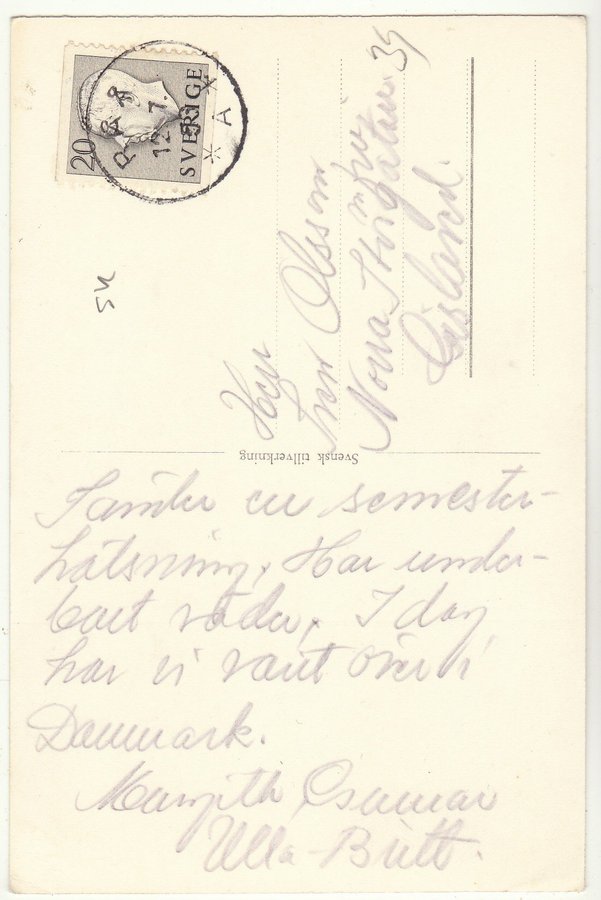 20
SVERIGE
12.7.
A
54
Herr
Olsson
m. fru
Nova Storgatan 39
Gislaved.
Svensk tillverkning
Sänder en semester-
hälsning. Har under-
bart väder. I dag
har vi varit över i
Danmark.
Margith, Gunnar
Ulla-Britt.